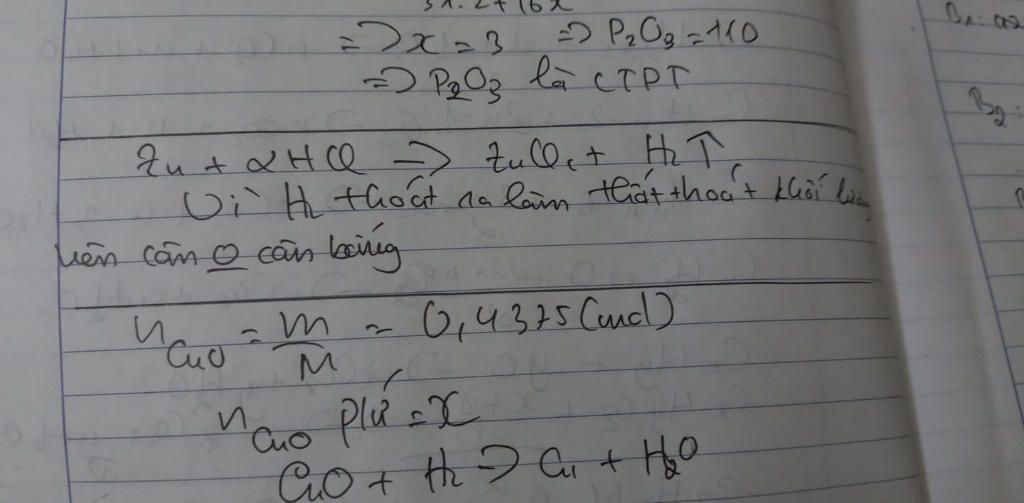 31.2+16x
=> x = 3 => P₂O₃ = 110
=> P₂O₃ là CTPT
Zn + 2HCl → ZnCl₂ + H₂↑
Vì H₂ thoát ra làm thất thoát khối lượng
nên cân O cân bằng
n_CuO = m/M = 0,4375 (mol)
n_CuO pứ = x
CuO + H₂ → Cu + H₂O